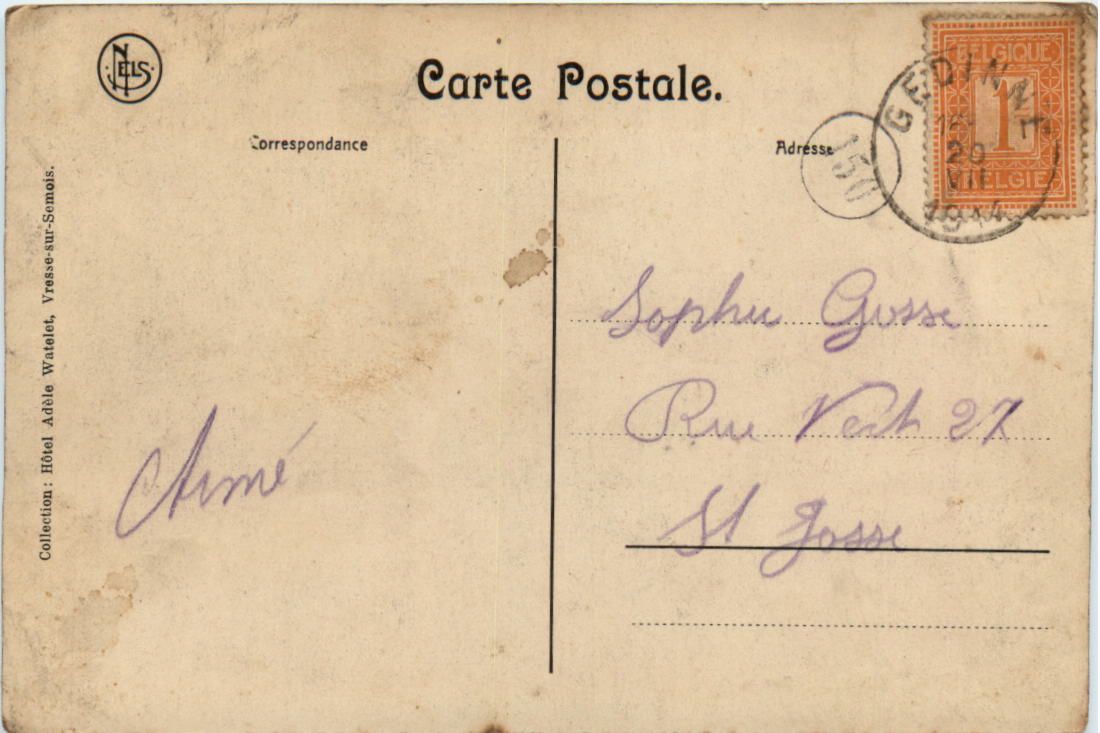 NELS
Carte Postale.
Correspondance
Adresse
150
BELGIQUE
1
BELGIË
GEDINNE
20
VII
1914
Collection : Hôtel Adèle Watelet, Vresse-sur-Semois.
Sophie Gosse
Rue Verte 27
St Josse
Aimé